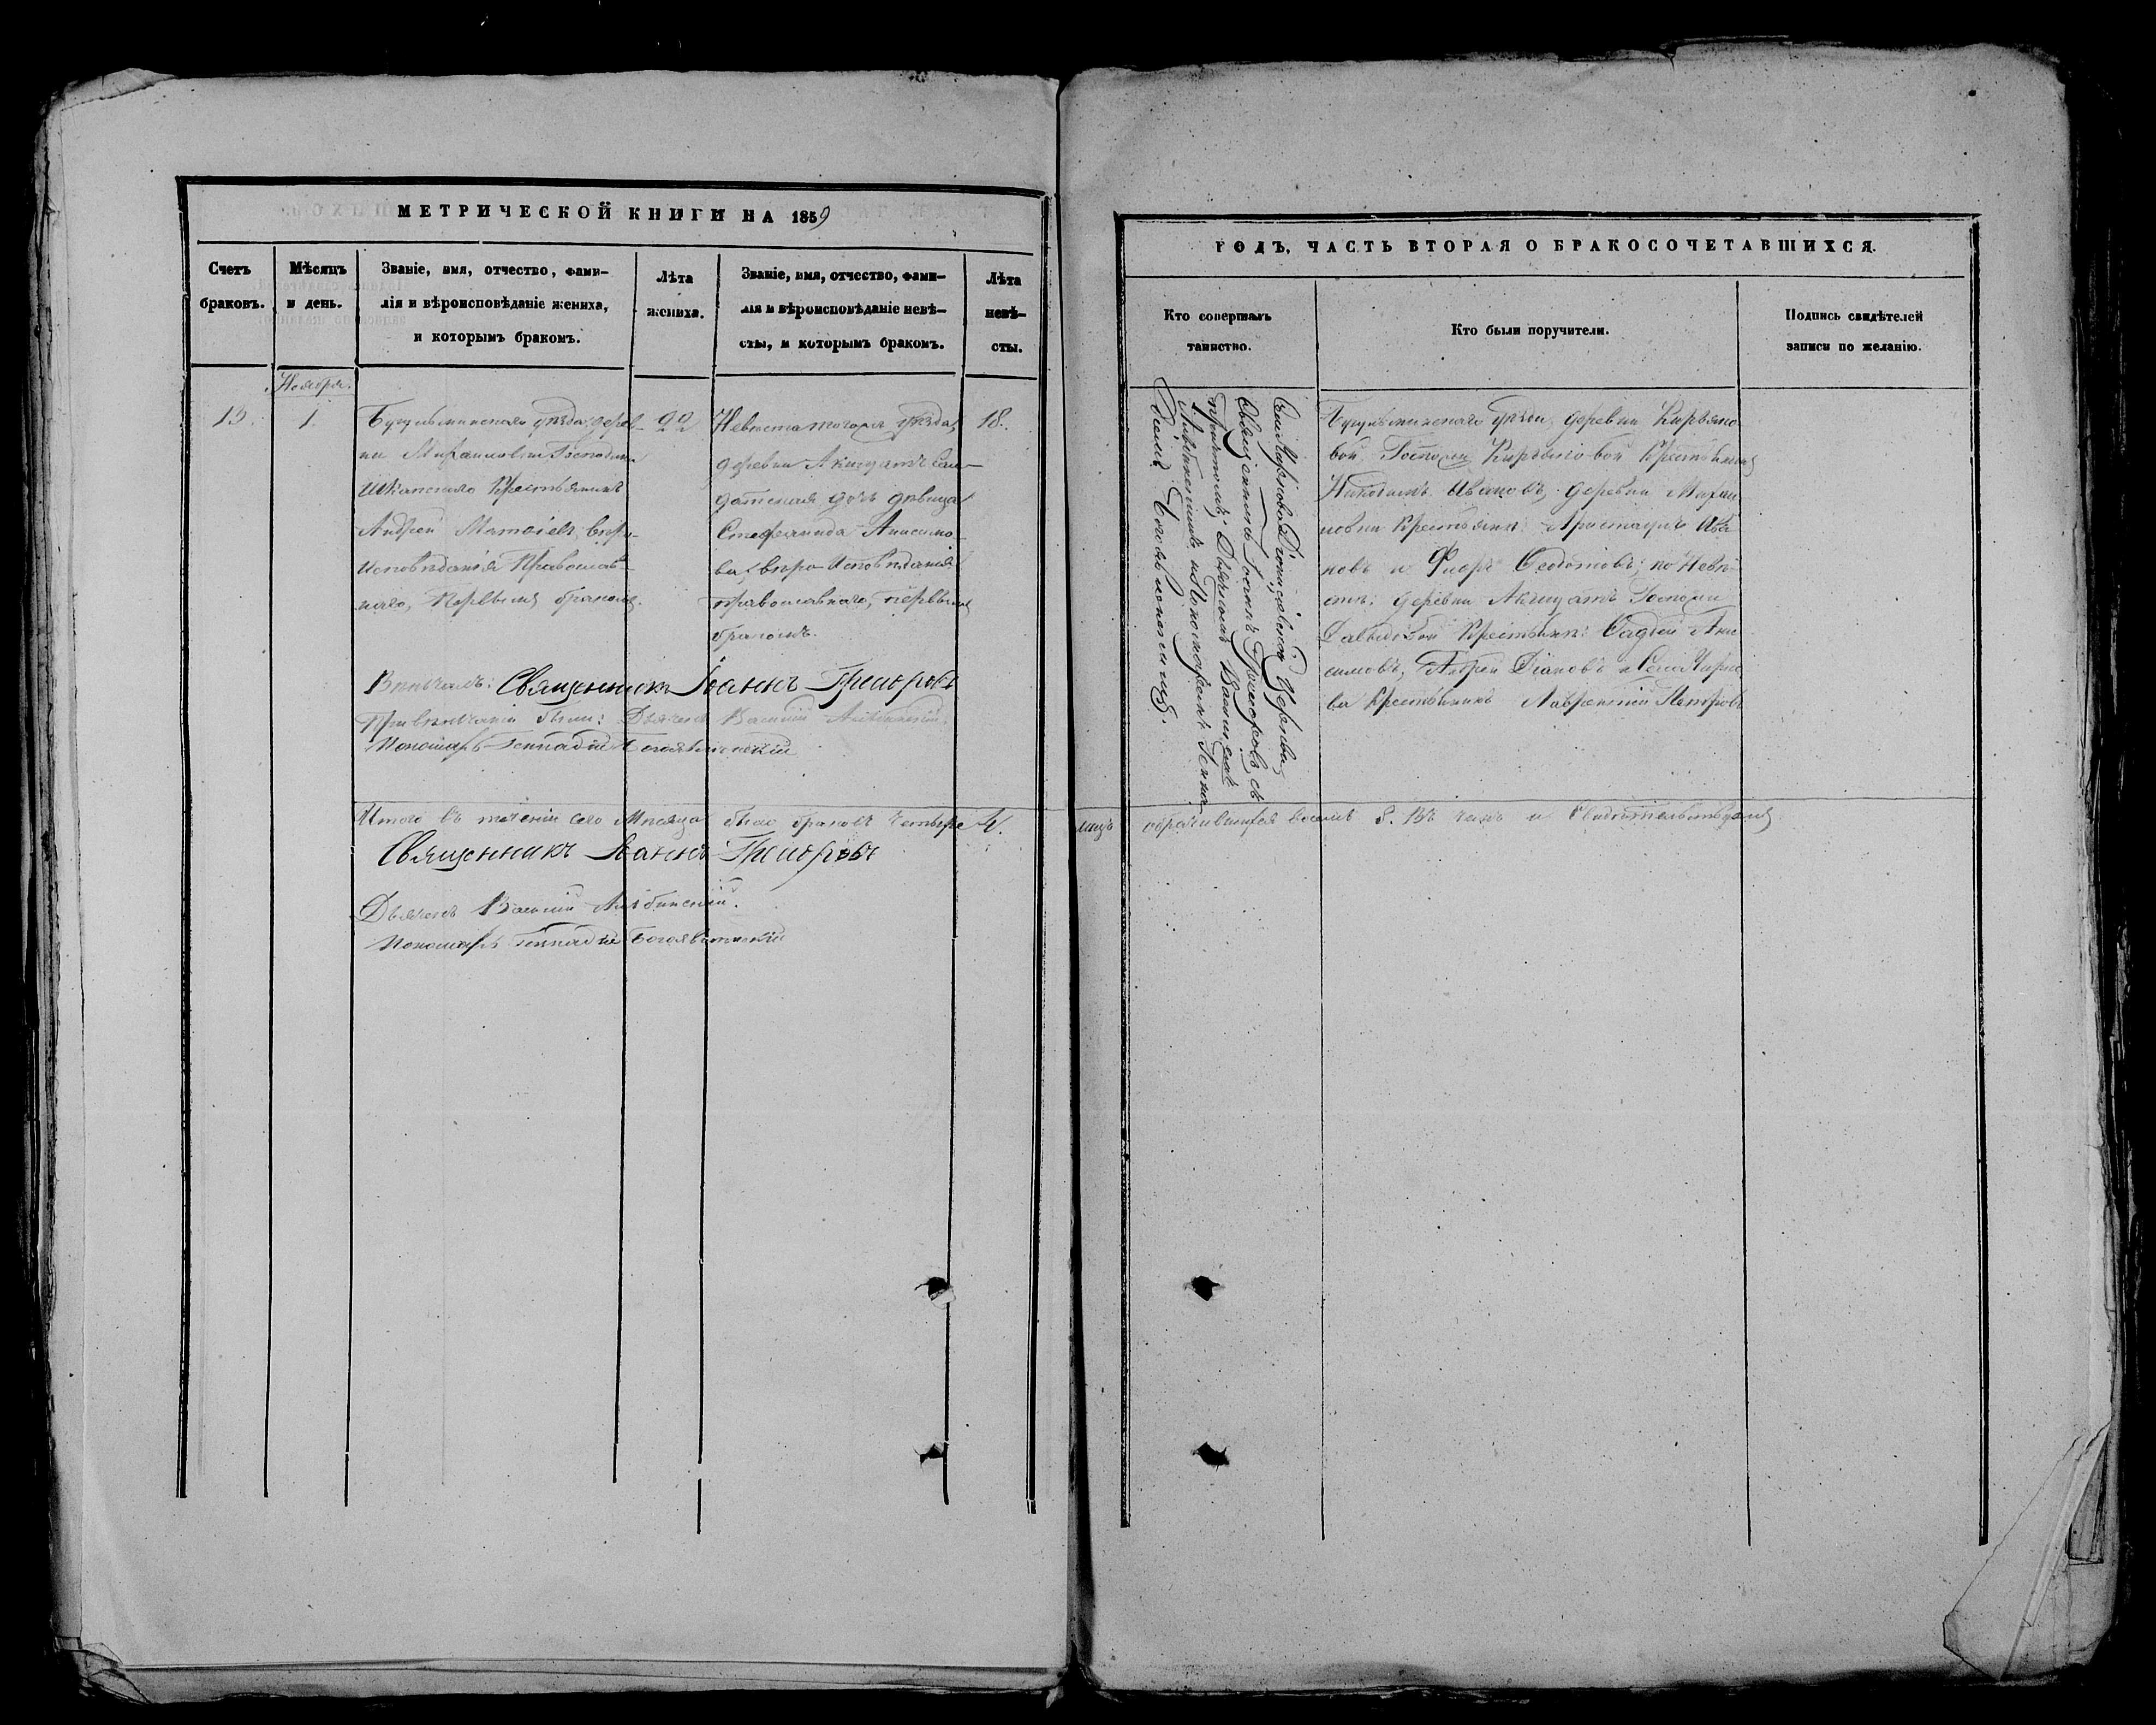 МЕТРИЧЕСКОЙ КНИГИ НА 1859
Счетъ браковъ.
Мѣсяцъ и день.
Званіе, имя, отчество, фами-
лія и вѣроисповѣданіе жениха,
и которымъ бракомъ.
Лѣта
жениха.
Званіе, имя, отчество, фами-
лія и вѣроисповѣданіе невѣ-
сты, и которымъ бракомъ.
Лѣта
невѣ-
сты.
Ноября.
13. 1.
Бугульминскаго уѣзда, дерев-
ни Михаиловки Господина
крестьянинъ
Андрей Матвіевъ, вѣро-
исповѣданія Православ-
наго, первымъ бракомъ.
22
Невѣста тогожъ уѣзда,
деревни Сол-
датская дочь дѣвица
Анисимо-
ва, вѣро-исповѣданія
православнаго, первымъ
бракомъ.
18.
Вѣнчалъ: Священникъ Іоаннъ Григоровъ
При вѣнчаніи были: Дьячекъ Василій
Пономарь Геннадій Богоявленскій
Итого въ теченіи сего Мѣсяца было браковъ четыре 4.
Священникъ Іоаннъ Григоровъ
Дьячекъ Василій
Пономарь Геннадій Богоявленскій
ГОДЪ, ЧАСТЬ ВТОРАЯ О БРАКОСОЧЕТАВШИХСЯ.
Кто совершалъ
таинство.
Кто были поручители.
Подпись свидѣтелей
записи по желанію.
Священникъ Іоаннъ Григоровъ съ
причтомъ: Дьячкомъ Васильемъ
и Пономаремъ Генна-
діемъ Богоявленскимъ.
Бугульминскаго уѣзда, деревни Кирѣяно-
вой Госпожи крестьянинъ
Ивановъ, деревни Михаи-
ловки крестьяне: Ива-
новъ и Ѳеодотовъ; по невѣ-
стѣ: деревни Госпожи
Давыдовой крестьяне: Ани-
симовъ, Андрей
крестьянинъ Лаврентій Петровъ
лицъ восемь 8. Въ чемъ и свидѣтельствуемъ